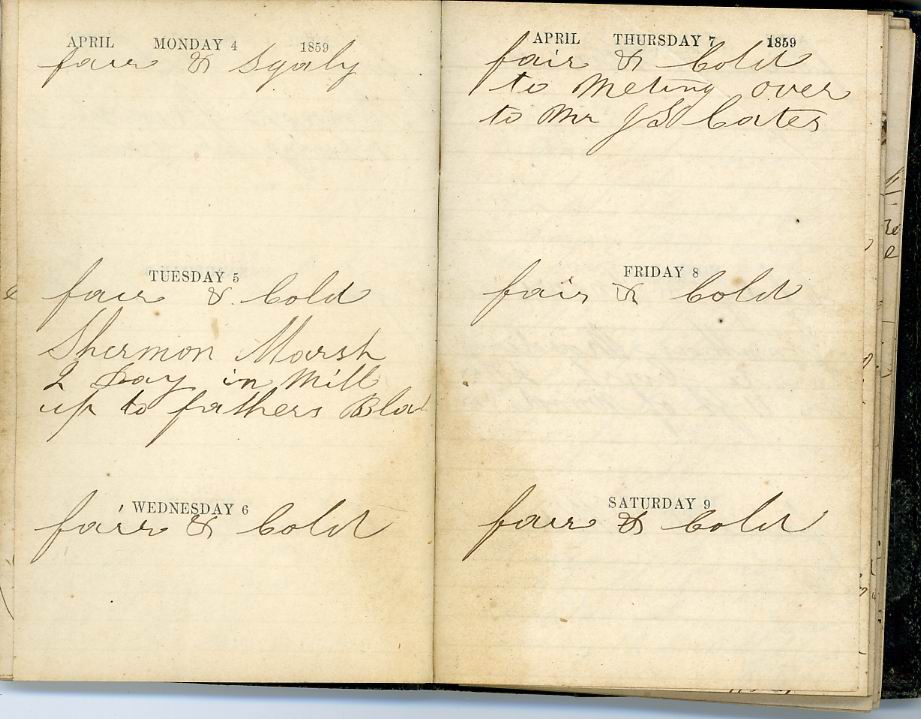 APRIL MONDAY 4 1859
fair & Sqaly
TUESDAY 5
fair & Cold
Shermon Marsh
2 Day in Mill
up to fathers
WEDNESDAY 6
fair & Cold
APRIL THURSDAY 7 1859
fair & Cold
to Meting over
to Mr J S Cates
FRIDAY 8
fair & Cold
SATURDAY 9
fair & Cold